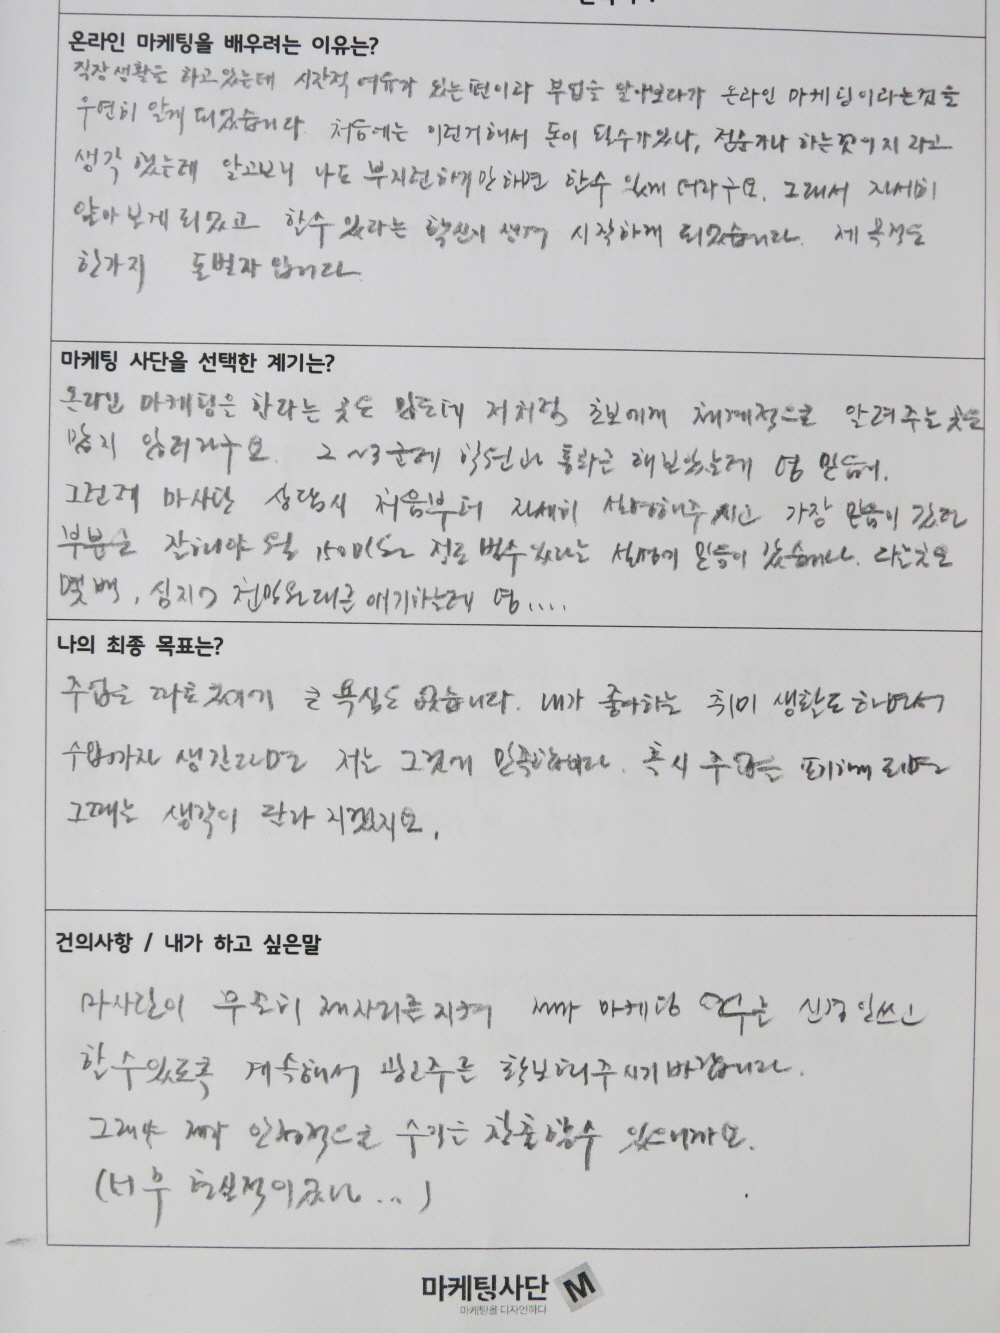 온라인 마케팅을 배우려는 이유는?
직장생활을 하고 있는데 시간적 여유가 있는편이라 부업을 알아보다가 온라인 마케팅이라는것을
우연히 알게 되었습니다. 처음에는 이런거해서 돈이 될수가있나, 점순가나 하는것이지 라고
생각 했는데 알고보니 나도 부지런하게만하면 할수 있게 더라구요. 그래서 자세히
알아보게되었고 할수 있다는 확신이 생겨 시작하게 되었습니다. 제 목적은
한가지 돈벌자 입니다.
마케팅 사단을 선택한 계기는?
온라인 마케팅을 한다는 곳은 많은데 저처럼 초보에게 체계적으로 알려주는 곳은
많지 않더라구요. 2~3군데 학원과 통화는 해보았는데 영 믿음이.
그런데 마사단 상담시 처음부터 자세히 설명해주시고 가장 믿음이 갔던
부분은 잘해야 월 150만원 정도 벌수있다는 설명에 믿음이 갔습니다. 다른곳은
몇백, 심지어 천만원대를 얘기하는데 영....
나의 최종 목표는?
주업은 따로있기에 큰 욕심은 없습니다. 내가 좋아하는 취미 생활도하면서
수입까지 생긴다면 저는 그것에 만족합니다. 혹시 주업을 폐하게 되면
그때는 생각이 달라 지겠지요.
건의사항 / 내가 하고 싶은말
마사단이 무조건 제자리를지켜 제가 마케팅 업무는 신경안쓰고
할수있도록 계속해서 광고주를 확보해주시기바랍니다.
그래야 제가 안정적으로 수익을 창출할수 있으니까요.
(너무 현실적이군나...)
마케팅사단 M
마케팅을 디자인하다